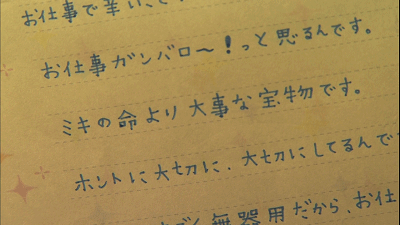 お仕事で辛いこと
お仕事ガンバロ〜！っと思るんです。
ミキの命より大事な宝物です。
ホントに大切に、大切にしてるんで
無器用だから、お仕